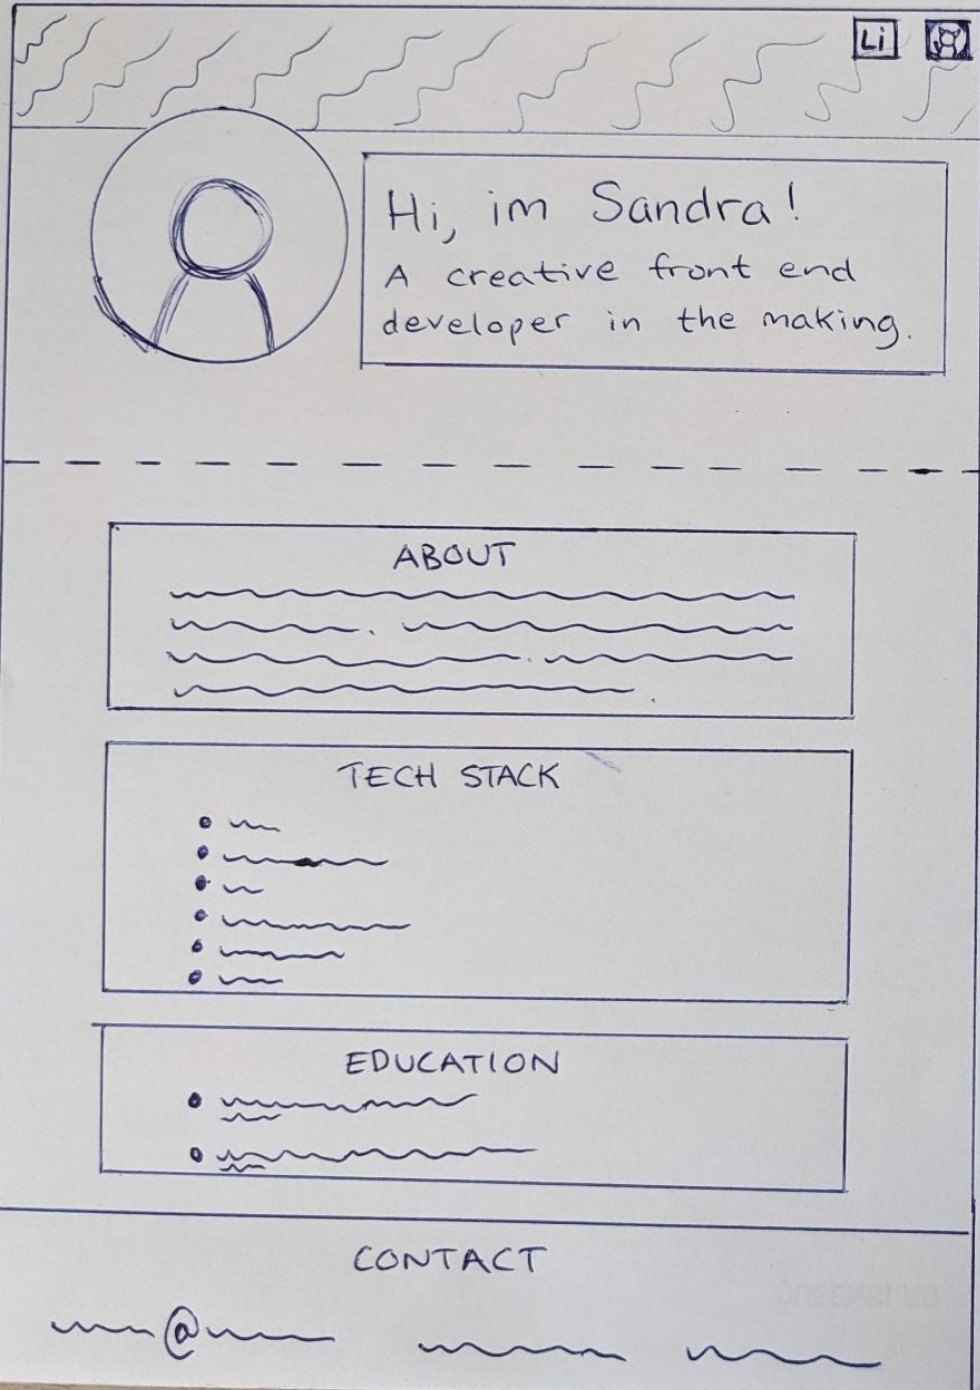 Li
Hi, im Sandra!
A creative front end
developer in the making.
ABOUT
TECH STACK
EDUCATION
CONTACT
@